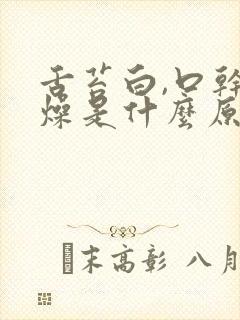 舌苔白,口幹
燥是什麼原
末高彰 八月